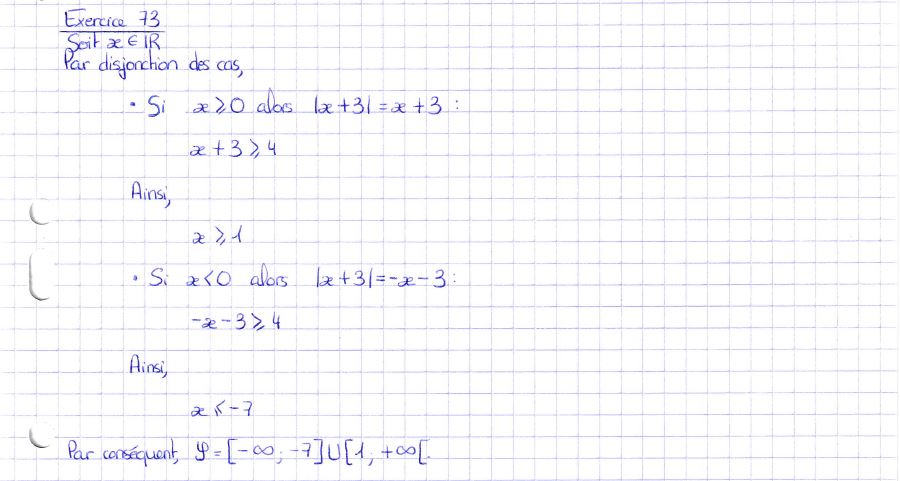 Exercice 73
Soit x ∈ ℝ
Par disjonction des cas,
• Si x ⩾ 0 alors |x+3| = x + 3 :
x + 3 ⩾ 4
Ainsi,
x ⩾ 1
• Si x < 0 alors |x+3| = -x - 3 :
-x - 3 ⩾ 4
Ainsi,
x ⩽ -7
Par conséquent, 𝒮 = [-∞; -7] ∪ [1; +∞[.